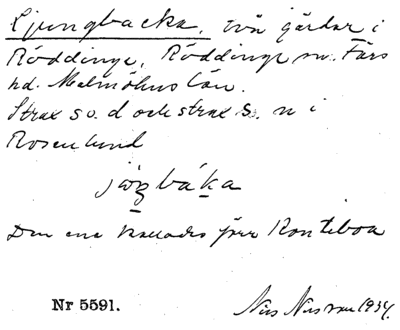 Ljungbacka, två gårdar i
Röddinge, Röddinge sn. Färs
hd. Malmöhus län.
Strax so. d och strax s. n i
Rosenlund
Den ena kallades förr Ronteboa
Nr 5591.
Nils 1934.